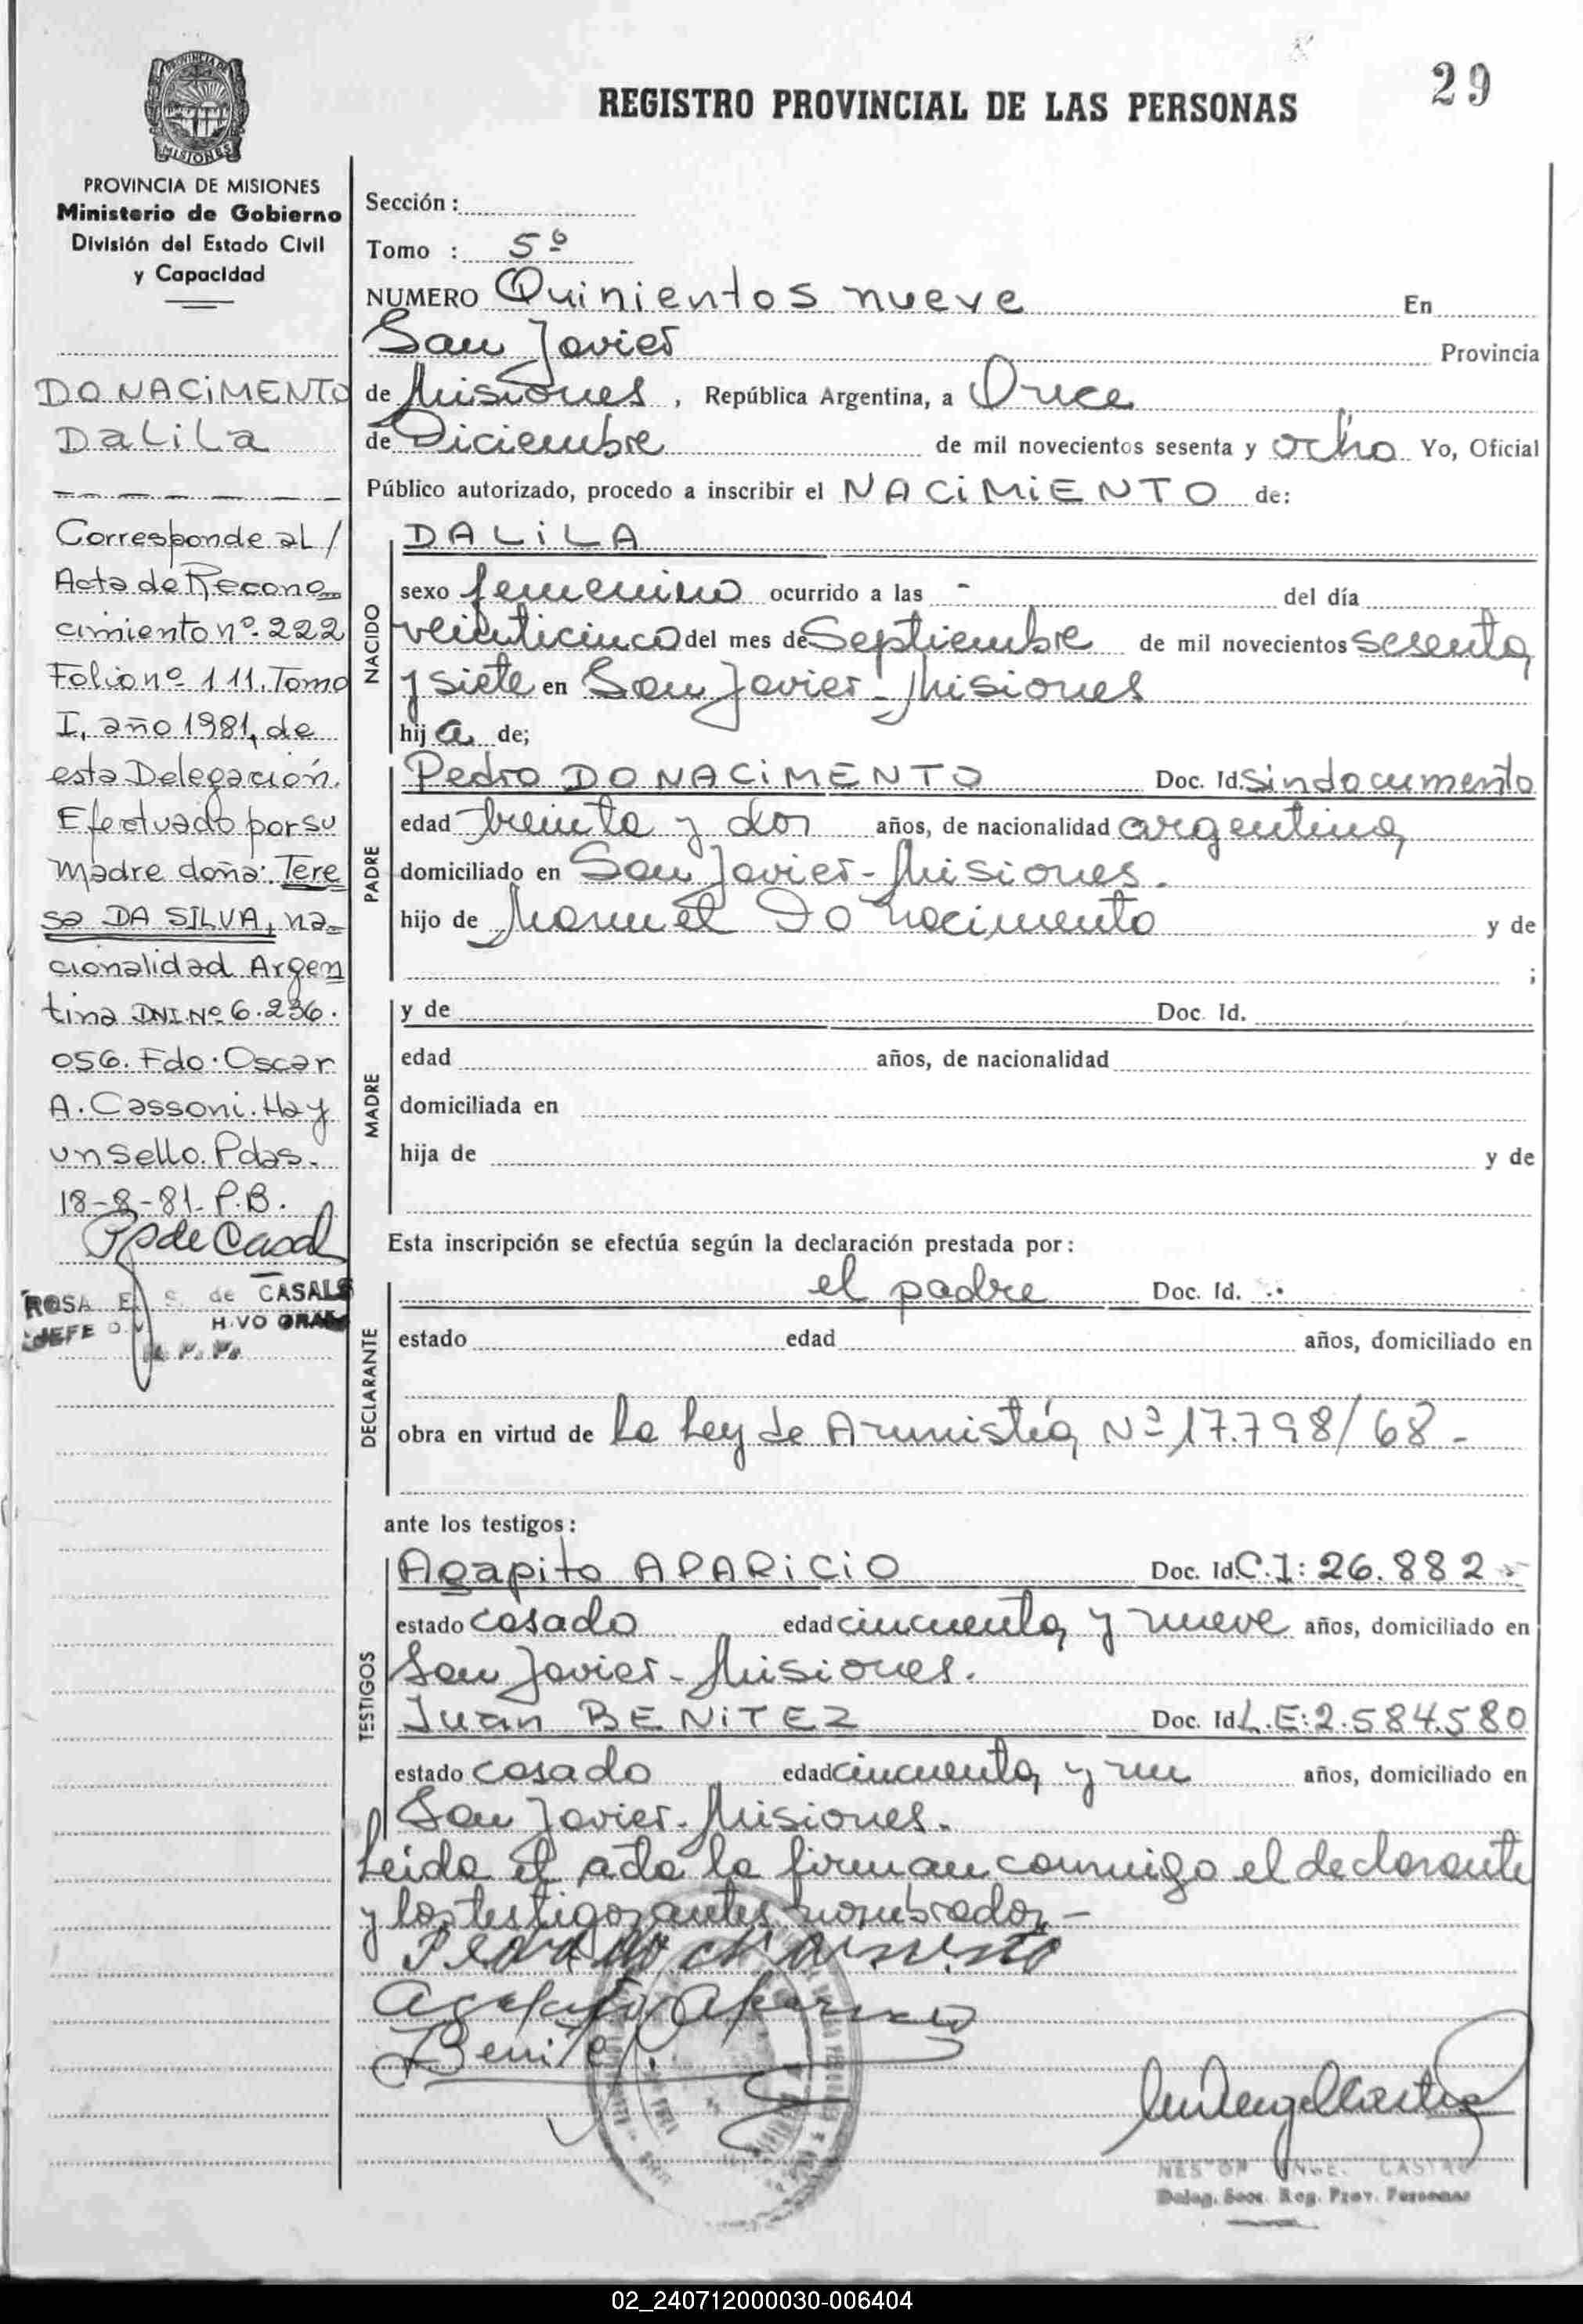 29
REGISTRO PROVINCIAL DE LAS PERSONAS
PROVINCIA DE MISIONES
Ministerio de Gobierno
División del Estado Civil
y Capacidad
DO NACiMENTO
DaLiLa
Corresponde al /
Acta de Recono_
cimiento nº 222
Folio nº 111. Tomo
I, año 1981, de
esta Delegación.
Efectuado por su
Madre doña: Tere
sa DA SILVA, na_
cionalidad Argen
tina DNI. Nº 6.236.
056. Fdo: Oscar
A. Cassoni. Hay
un Sello. Pdas.
18-8-81. P.B.
ROSA E. S. de CASALS
JEFE
Sección :
Tomo : 5º
NUMERO Quinientos nueve En
San Javier Provincia
de Misiones, República Argentina, a Once
de Diciembre de mil novecientos sesenta y ocho Yo, Oficial
Público autorizado, procedo a inscribir el NACiMiENTO de:
NACIDO
DALiLA
sexo femenino ocurrido a las - del día
veinticinco del mes de Septiembre de mil novecientos sesenta
y siete en San Javier - Misiones
hija de;
PADRE
Pedro DO NACiMENTO Doc. Id. Sin documento
edad treinta y dos años, de nacionalidad argentina
domiciliado en San Javier - Misiones.
hijo de Manuel Do Nacimento y de
;
MADRE
y de Doc. Id.
edad años, de nacionalidad
domiciliada en
hija de y de
Esta inscripción se efectúa según la declaración prestada por :
DECLARANTE
el padre Doc. Id.
estado edad años, domiciliado en
obra en virtud de la Ley de Amnistía Nº 17.798/68-
ante los testigos :
TESTIGOS
Agapito APARiCiO Doc. Id. C.I: 26.882
estado casado edad cincuenta y nueve años, domiciliado en
San Javier - Misiones.
Juan BENiTEZ Doc. Id. L.E: 2.584.580
estado casado edad cincuenta y un años, domiciliado en
San Javier - Misiones.
Leida el acta la firman conmigo el declarante
y los testigos antes nombrados -
Benitez
NESTOR ANGEL CASTRO
Deleg. Secc. Reg. Prov. Personas
02_240712000030-006404